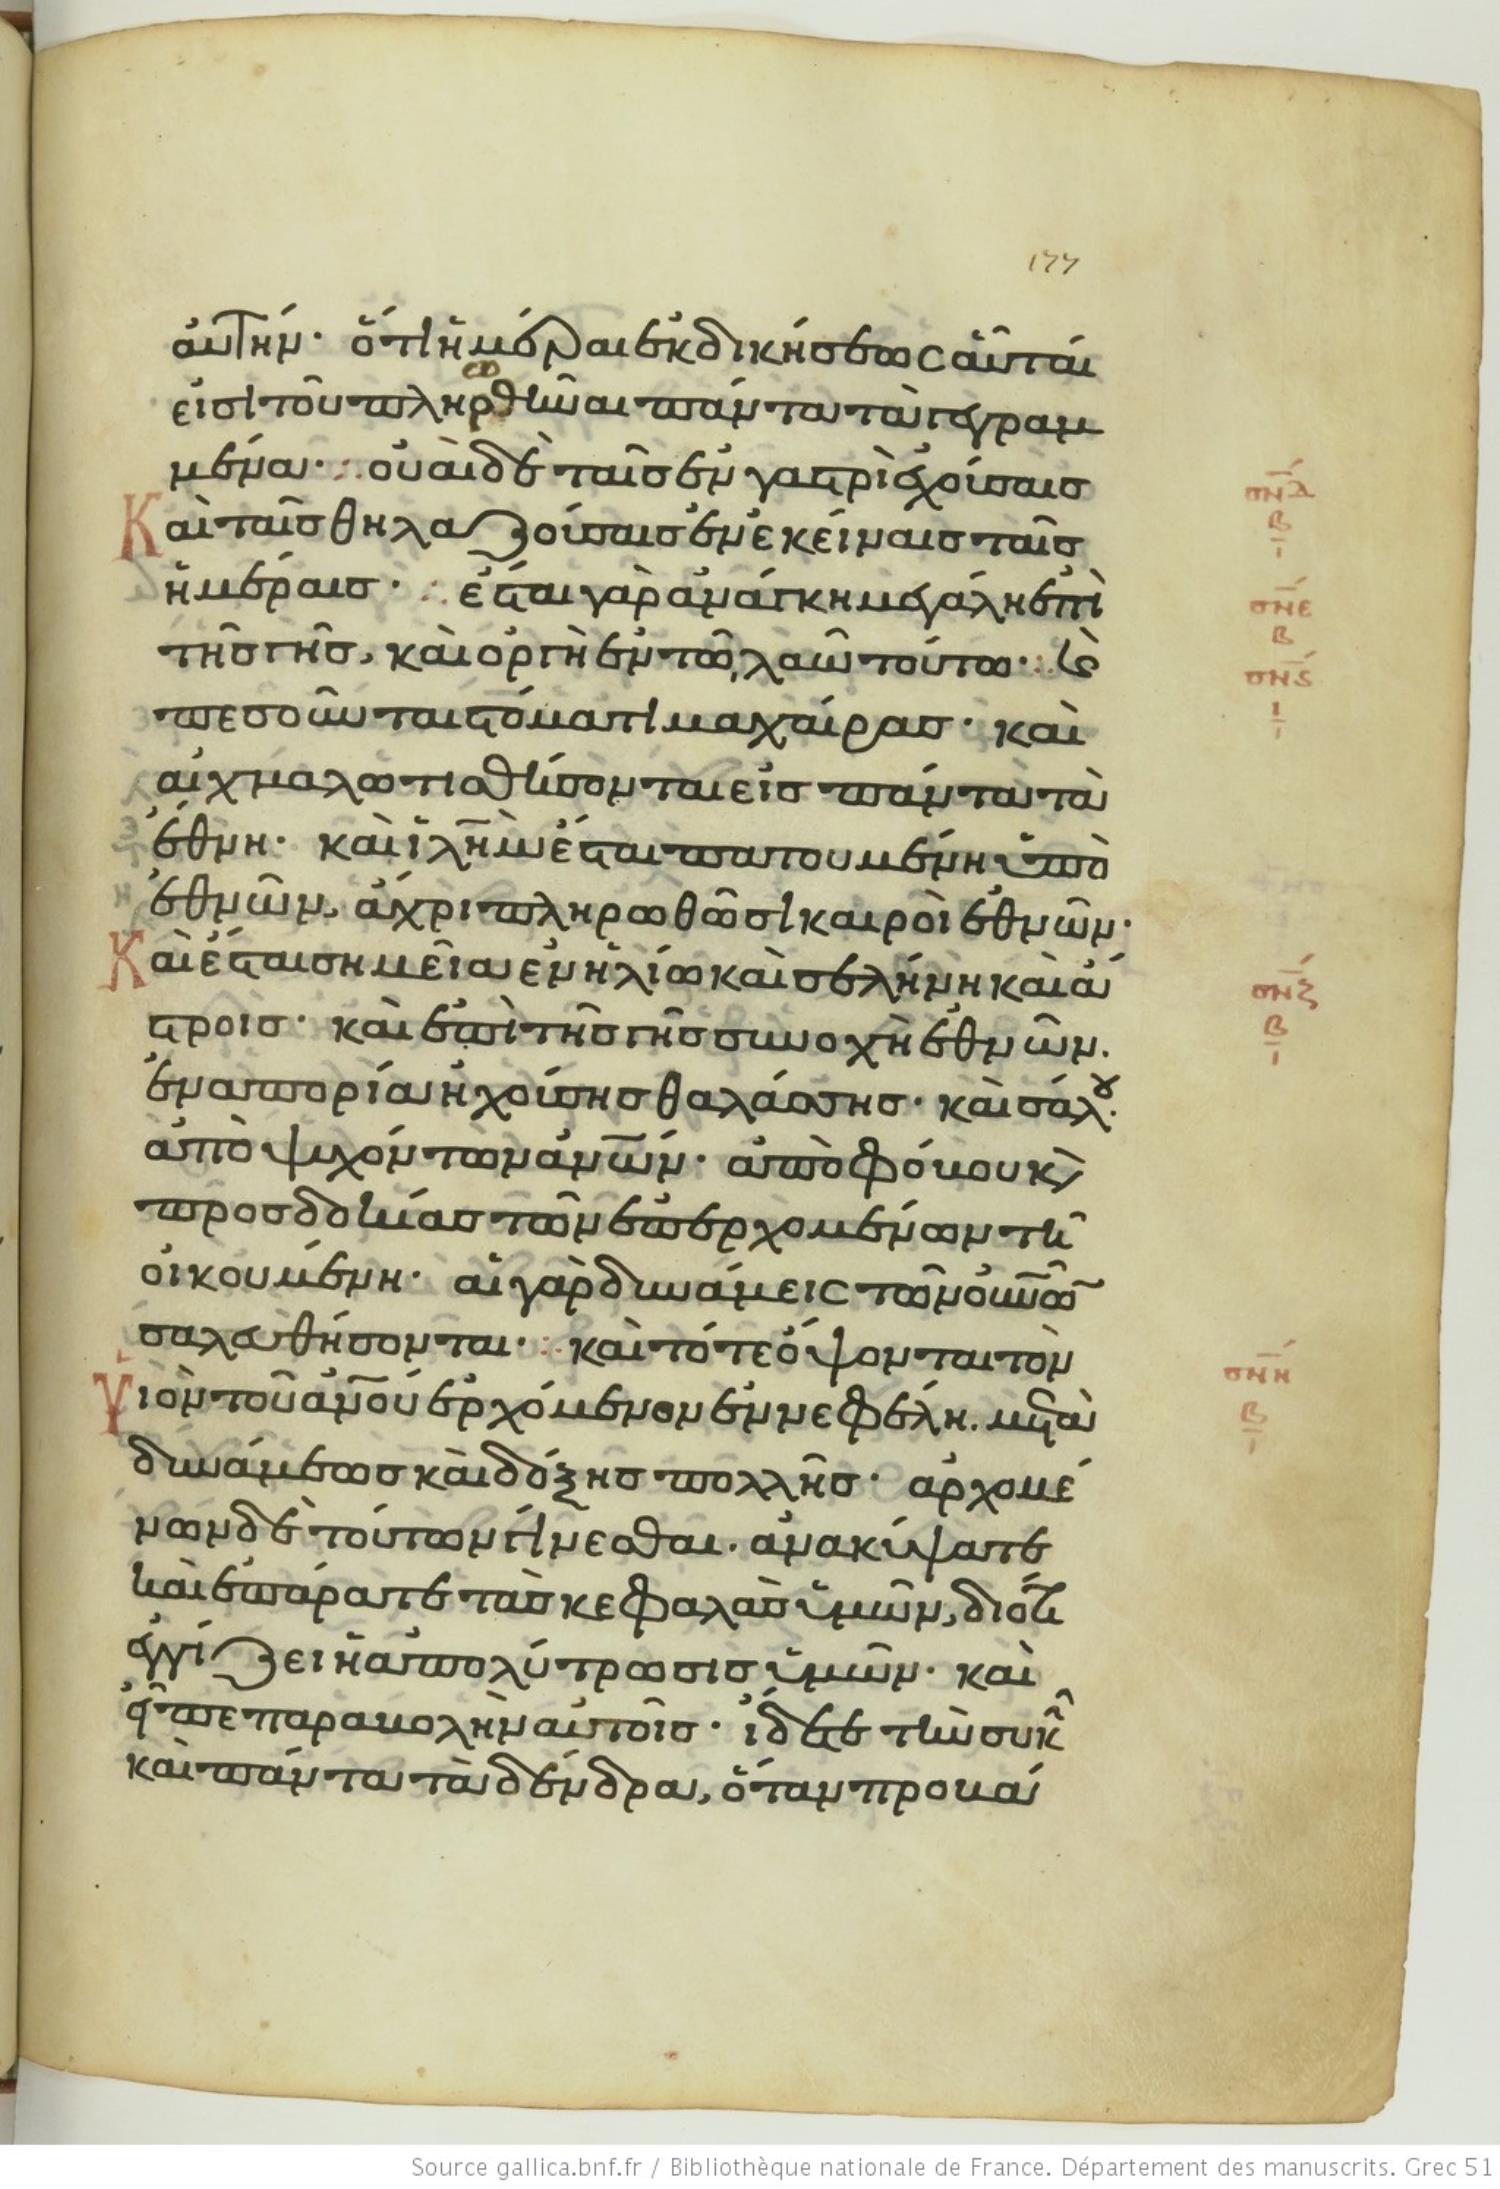 177
αὐτήν· ὅτι ἡμέραι ἐκδικήσεως αὗται
εἰσὶ τοῦ πληρωθῆναι πάντα τὰ γεγραμ
μένα· οὐαὶ δὲ ταῖς ἐν γαστρὶ ἐχούσαις
Καὶ ταῖς θηλαζούσαις ἐν ἐκείναις ταῖς
ἡμέραις· ἔσται γὰρ ἀνάγκη μεγάλη ἐπὶ
τῆς γῆς, καὶ ὀργὴ ἐν τῶ λαῶ τούτω· καὶ
πεσοῦνται στόματι μαχαίρας· καὶ
αἰχμαλωτισθήσονται εἰς πάντα τὰ
ἔθνη· καὶ ἰλῆμ ἔσται πατουμένη ὑπὸ
ἐθνῶν, ἄχρι πληρωθῶσι καιροὶ ἐθνῶν·
Καὶ ἔσται σημεῖα ἐν ἡλίω καὶ σελήνη καὶ ἄ
στροις· καὶ ἐπὶ τῆς γῆς συνοχὴ ἐθνῶν.
ἐν ἀπορία ἠχούσης θαλάσσης· καὶ σάλου·
ἀποψυχόντων ἀνων· ἀπὸ φόβου κ
προσδοκίας τῶν ἐπερχομένων τῆ
οἰκουμένη· αἱ γὰρ δυνάμεις τῶν οὐνῶ
σαλευθήσονται· καὶ τότε ὄψονται τὸν
Υἱὸν τοῦ ἀνου ἐρχόμενον ἐν νεφέλη. μετὰ
δυνάμεως καὶ δόξης πολλῆς· ἀρχομέ
νων δὲ τούτων γίνεσθαι. ἀνακύψατε
καὶ ἐπάρατε τὰς κεφαλὰς ὑμῶν, διότι
ἐγγίζει ἡ ἀπολύτρωσις ὑμῶν· καὶ
εἶπε παραβολὴν αὐτοῖς· ἴδετε τὴν συκῆ
καὶ πάντα τὰ δένδρα, ὅταν προβά
σνδ
β
ι
σνε
β
σνς
ι
σνζ
β
ι
σνη
β
ι
Source gallica.bnf.fr / Bibliothèque nationale de France. Département des manuscrits. Grec 51